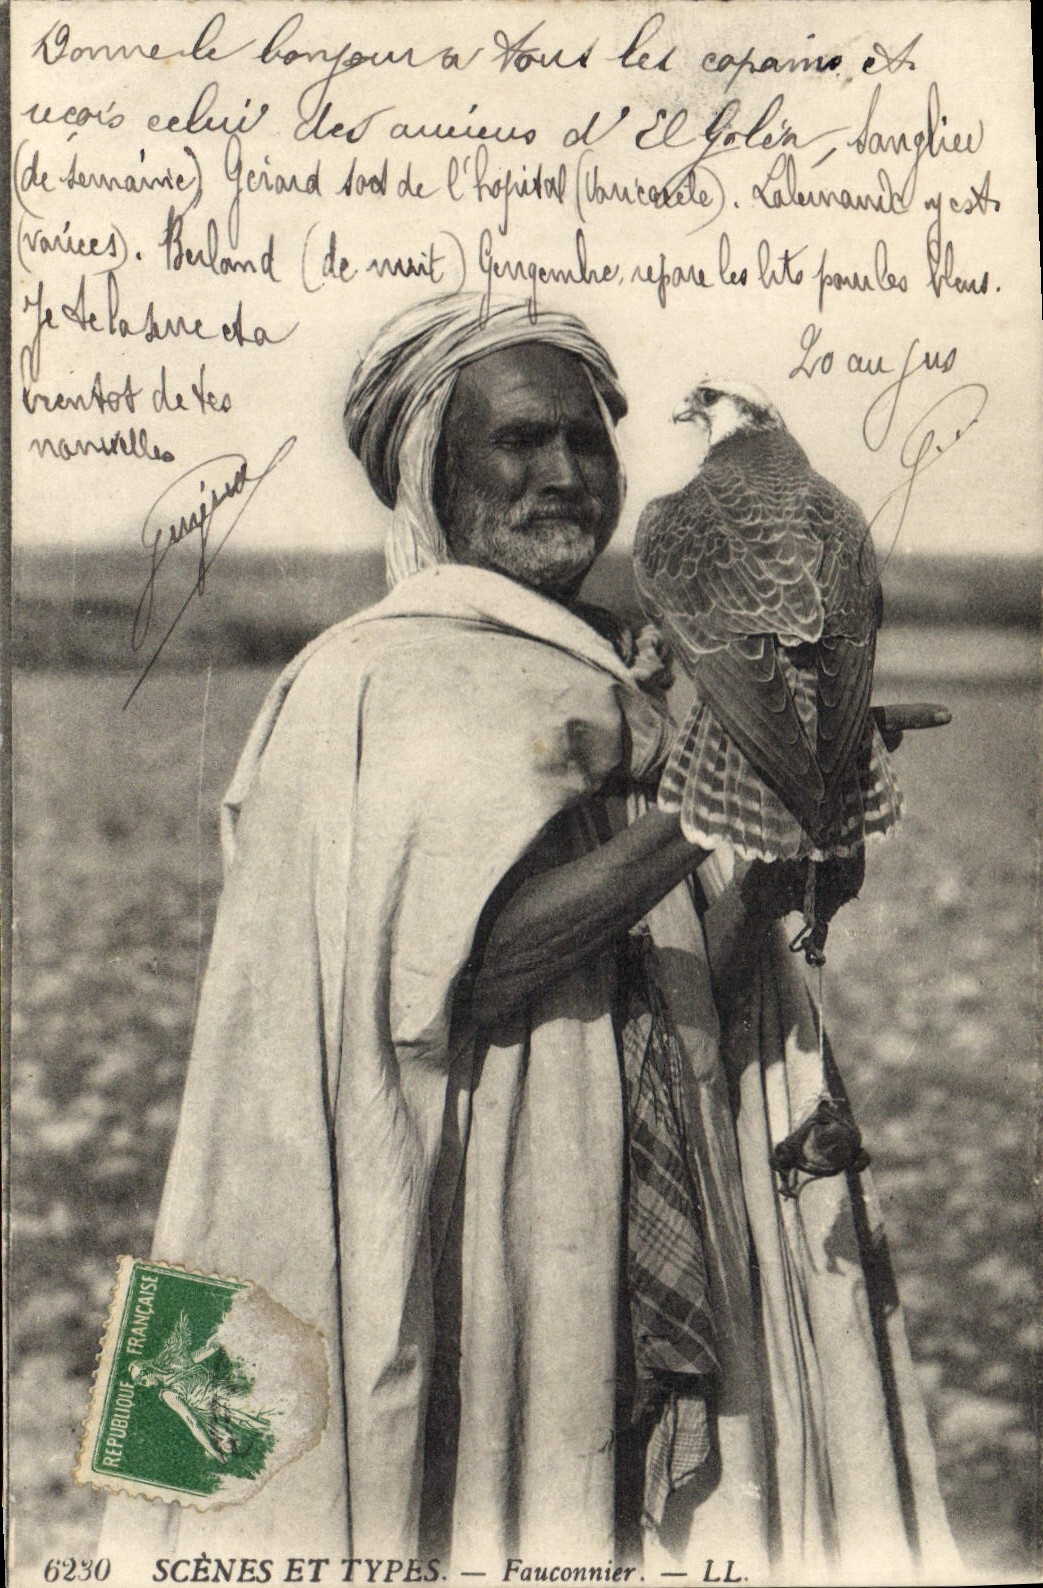 Donne le bonjour a tous les copains, et
reçois celui des anciens d' El Goléa, Sanglier
(de semaine), Gérard sort de l'hopital (Varicocèle). Lalemand y est
(varices). Berland (de nuit) Gengembre, repare les lits pour les bleus.
Je te la serre et a
bientot de tes
nouvelles
20 au jus
REPUBLIQUE FRANÇAISE
6230 SCÈNES ET TYPES. — Fauconnier. — LL.